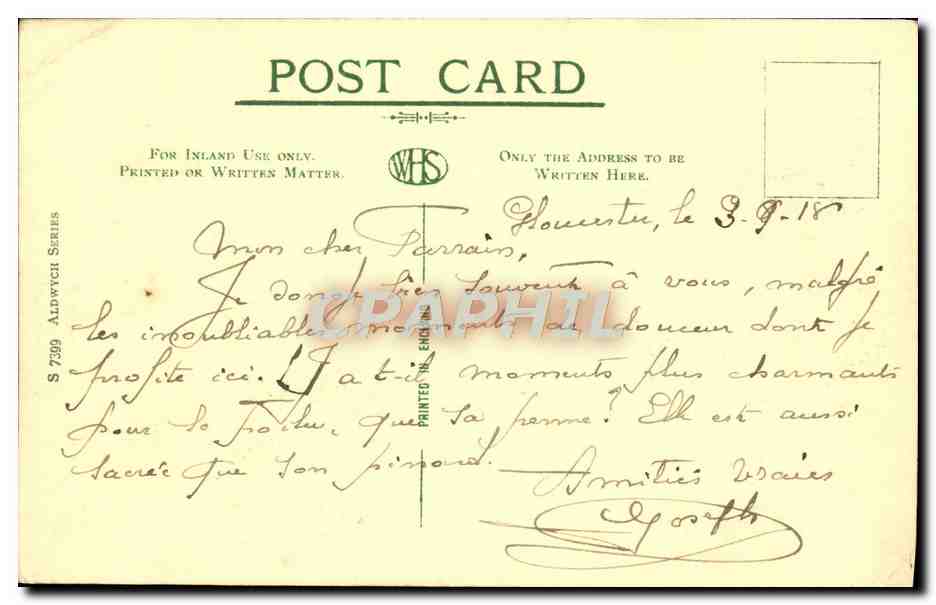 POST CARD
FOR INLAND USE ONLY.
PRINTED OR WRITTEN MATTER.
WHS
ONLY THE ADDRESS TO BE
WRITTEN HERE.
S 7399 ALDWYCH SERIES
PRINTED IN ENGLAND
Gloucester, le 3-9-18
Mon cher Parrain,
Je songe très souvent à vous, malgré
les inoubliables moments de douceur dont je
profite ici. Y a t-il moments plus charmants
pour le Poilu, que sa perme? Elle est aussi
sacrée que son pinard.
Amitiés vraies
Joseph
CPAPHIL